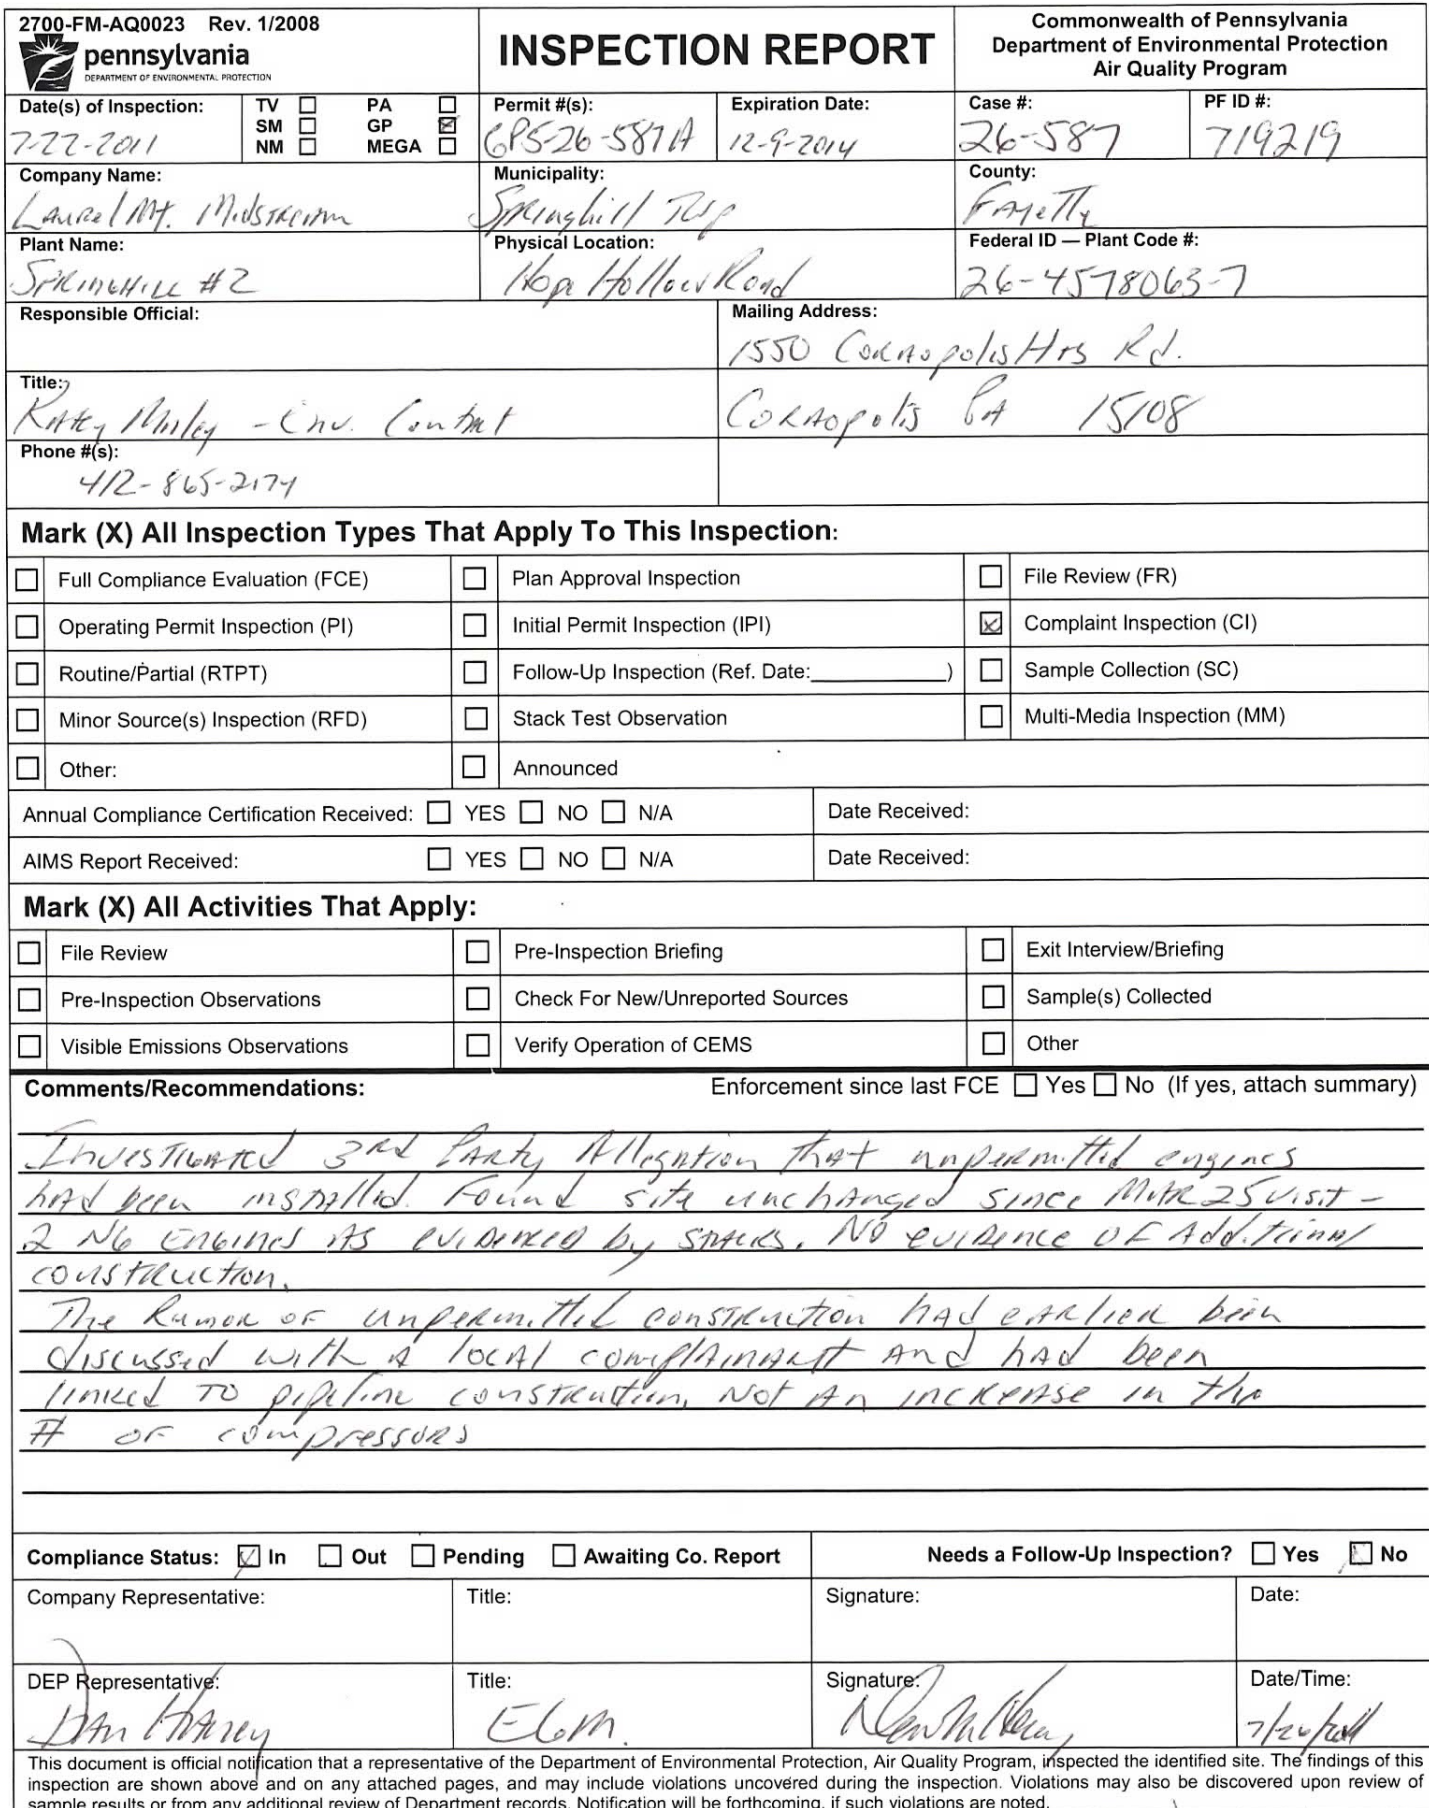 2700-FM-AQ0023 Rev. 1/2008
pennsylvania
DEPARTMENT OF ENVIRONMENTAL PROTECTION
INSPECTION REPORT
Commonwealth of Pennsylvania
Department of Environmental Protection
Air Quality Program
Date(s) of Inspection:
7-22-2011
TV ☐ PA ☐
SM ☐ GP ☒
NM ☐ MEGA ☐
Permit #(s):
GP5-26-587A
Expiration Date:
12-9-2014
Case #:
26-587
PF ID #:
719219
Company Name:
Laurel Mt. Midstream
Municipality:
Springhill Twp
County:
Fayette
Plant Name:
Springhill #2
Physical Location:
Hope Hollow Road
Federal ID — Plant Code #:
26-4578063-7
Responsible Official:
Mailing Address:
1550 Coraopolis Hts Rd.
Title:
- Env. Contact
Coraopolis PA 15108
Phone #(s):
412-865-2174
Mark (X) All Inspection Types That Apply To This Inspection:
☐ Full Compliance Evaluation (FCE) ☐ Plan Approval Inspection ☐ File Review (FR)
☐ Operating Permit Inspection (PI) ☐ Initial Permit Inspection (IPI) ☒ Complaint Inspection (CI)
☐ Routine/Partial (RTPT) ☐ Follow-Up Inspection (Ref. Date:____________) ☐ Sample Collection (SC)
☐ Minor Source(s) Inspection (RFD) ☐ Stack Test Observation ☐ Multi-Media Inspection (MM)
☐ Other: ☐ Announced
Annual Compliance Certification Received: ☐ YES ☐ NO ☐ N/A Date Received:
AIMS Report Received: ☐ YES ☐ NO ☐ N/A Date Received:
Mark (X) All Activities That Apply:
☐ File Review ☐ Pre-Inspection Briefing ☐ Exit Interview/Briefing
☐ Pre-Inspection Observations ☐ Check For New/Unreported Sources ☐ Sample(s) Collected
☐ Visible Emissions Observations ☐ Verify Operation of CEMS ☐ Other
Comments/Recommendations: Enforcement since last FCE ☐ Yes ☐ No (If yes, attach summary)
Investigated 3rd Party Allegation that unpermitted engines
had been installed. Found site unchanged since MAR 25 visit -
2 NG Engines as evidenced by stacks. No evidence of Additional
construction.
The Rumor of unpermitted construction had earlier been
discussed with a local complainant and had been
linked to pipeline construction, Not An increase in the
# of compressors
Compliance Status: ☒ In ☐ Out ☐ Pending ☐ Awaiting Co. Report Needs a Follow-Up Inspection? ☐ Yes ☒ No
Company Representative: Title: Signature: Date:
DEP Representative: Title: Signature: Date/Time:
7/26/2011
This document is official notification that a representative of the Department of Environmental Protection, Air Quality Program, inspected the identified site. The findings of this
inspection are shown above and on any attached pages, and may include violations uncovered during the inspection. Violations may also be discovered upon review of
sample results or from any additional review of Department records. Notification will be forthcoming, if such violations are noted.